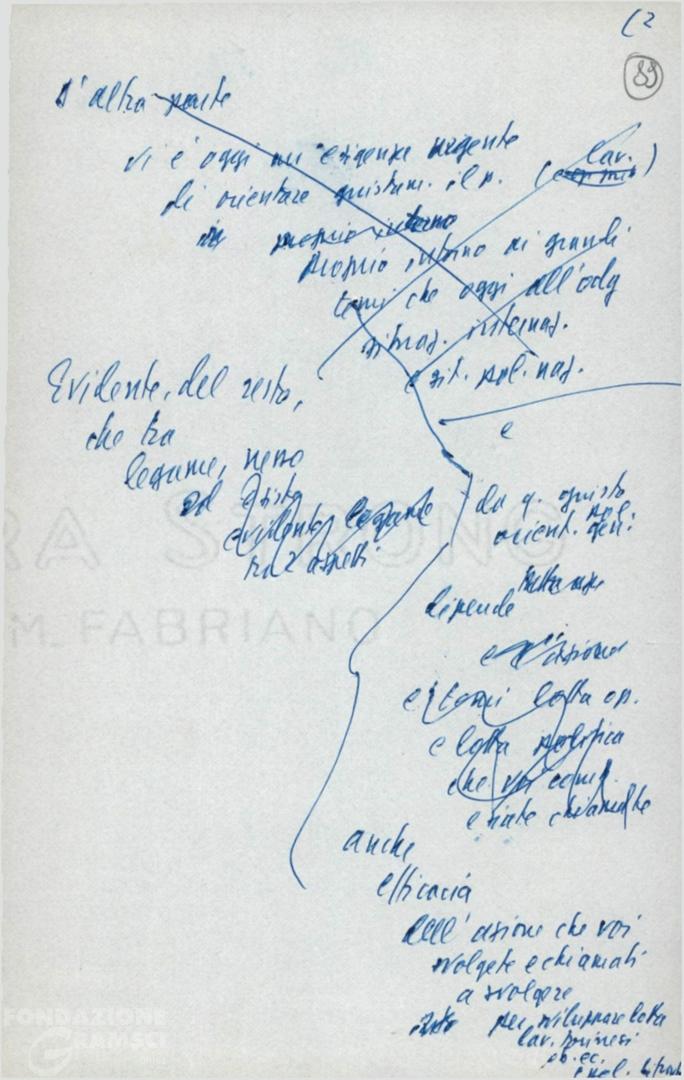 (2
89
D'altra parte
vi è oggi un'esigenza urgente
di orientare giustam. il p. (lav.)
in proprio interno
proprio intorno ai grandi
temi che oggi all'odg
situaz. internaz.
e sit. pol. naz.
e
Evidente, del resto,
che tra
legame, nesso
esista
evidente legame
tra 2 aspetti
da q. giusto
orient. pol. gen:
dipende
e l'azione
e lotta op.
e lotta politica
che voi
e siate chiamate
anche
efficacia
dell'azione che voi
svolgete e chiamati
a svolgere
per sviluppare lotta
lav. torinesi
ob. ec.
RA STRONG
M. FABRIANO
FONDAZIONE
GRAMSCI